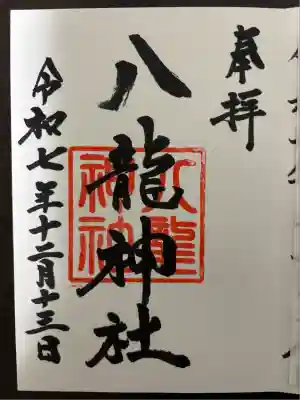 奉拝
八龍神社
八龍神社
令和七年十二月十三日